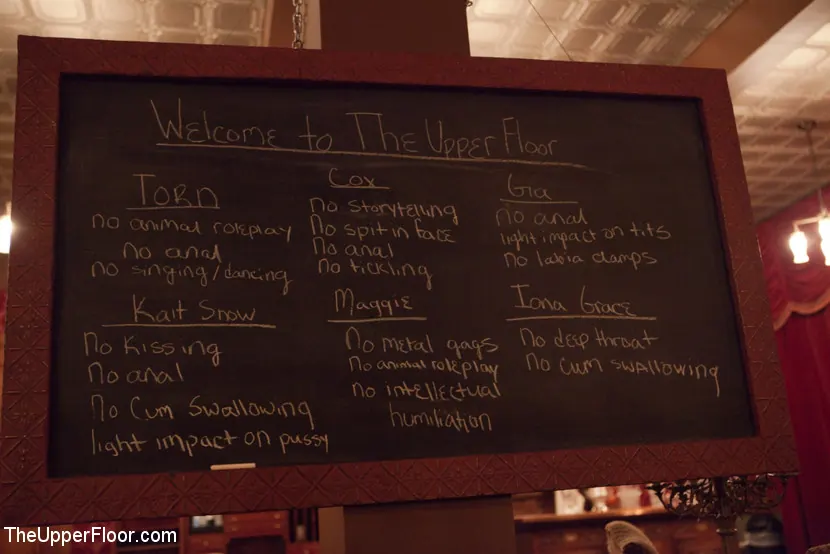 Welcome to The Upper Floor
Torn
no animal roleplay
no anal
no singing/dancing
Cox
no storytelling
No spit in face
No anal
no tickling
Gia
no anal
light impact on tits
no labia clamps
Kait Snow
No Kissing
No anal
No Cum Swallowing
light impact on pussy
Maggie
No metal gags
No animal roleplay
no intellectual
humiliation
Iona Grace
No deep throat
no cum swallowing
TheUpperFloor.com